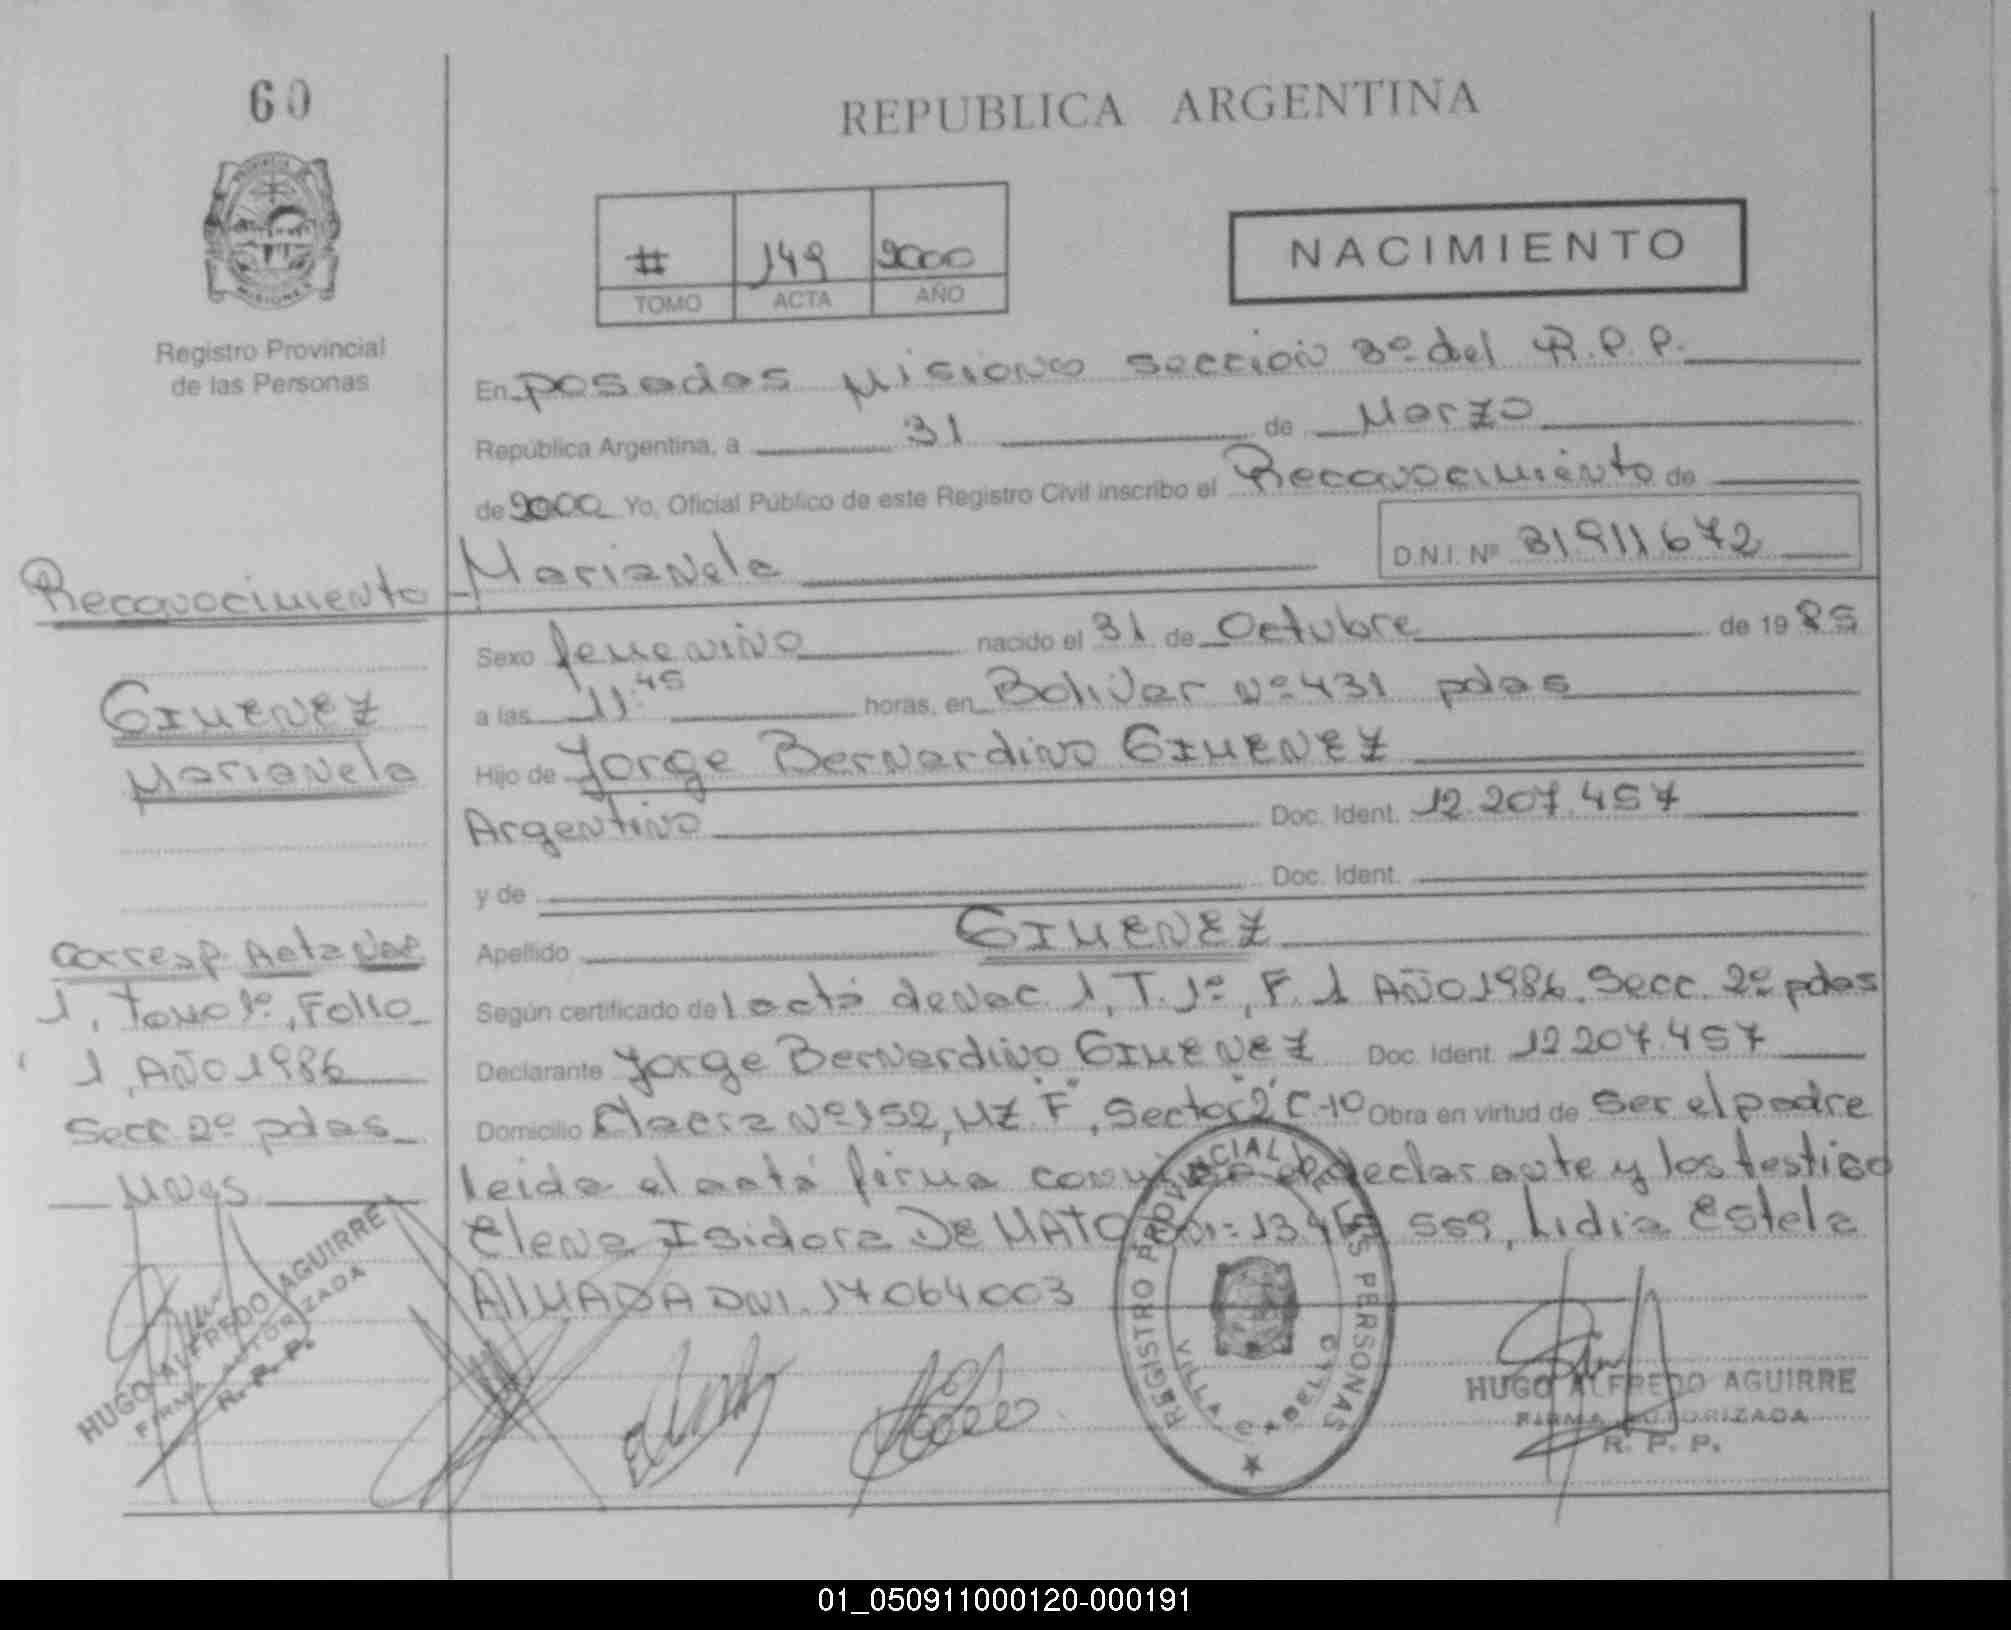 60
REPUBLICA ARGENTINA
# 149 2000
TOMO ACTA AÑO
NACIMIENTO
Registro Provincial
de las Personas
En Posadas Misiones Sección 3º del R.P.P.
República Argentina, a 31 de Marzo
de 2000 Yo, Oficial Público de este Registro Civil inscribo el Reconocimiento de
Marianela D.N.I. Nº 31911672
Reconocimiento
GIMENEZ
Marianela
Corresp. Acta Nac
1, Tomo 1º, Folio
1, AÑO 1986
Secc 2º pdas
Mnes
HUGO ALFREDO AGUIRRE
FIRMA AUTORIZADA
R. P. P.
Sexo femenino nacido el 31 de Octubre de 1985
a las 11:45 horas, en Bolivar Nº 431 pdas
Hijo de Jorge Bernardino GIMENEZ
Argentino Doc. Ident. 12.207.457
y de Doc. Ident.
Apellido GIMENEZ
Según certificado de l acta de nac. 1, T. 1º, F. 1 AÑO 1986. Secc. 2º pdas
Declarante Jorge Bernardino GIMENEZ Doc. Ident. 12207.457
Domicilio Nº 152, MZ. "F", Sector "2" C-10 Obra en virtud de ser el padre
leida el acta firma declarante y los testigo
Elena Isidora DE 559, Lidia Estela
AlMADA DNI. 17064003
REGISTRO PROVINCIAL DE LAS PERSONAS
VILLA CABELLO
HUGO ALFREDO AGUIRRE
FIRMA AUTORIZADA
R. P. P.
01_050911000120-000191